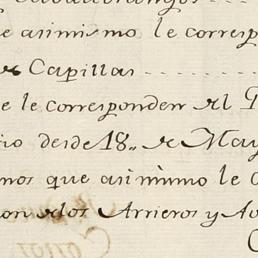 e asimismo le corresp
de Capillas
e le corresponden al P
io desde 18,, de May
nos que asimimo le c
on de los Arrieros y Av